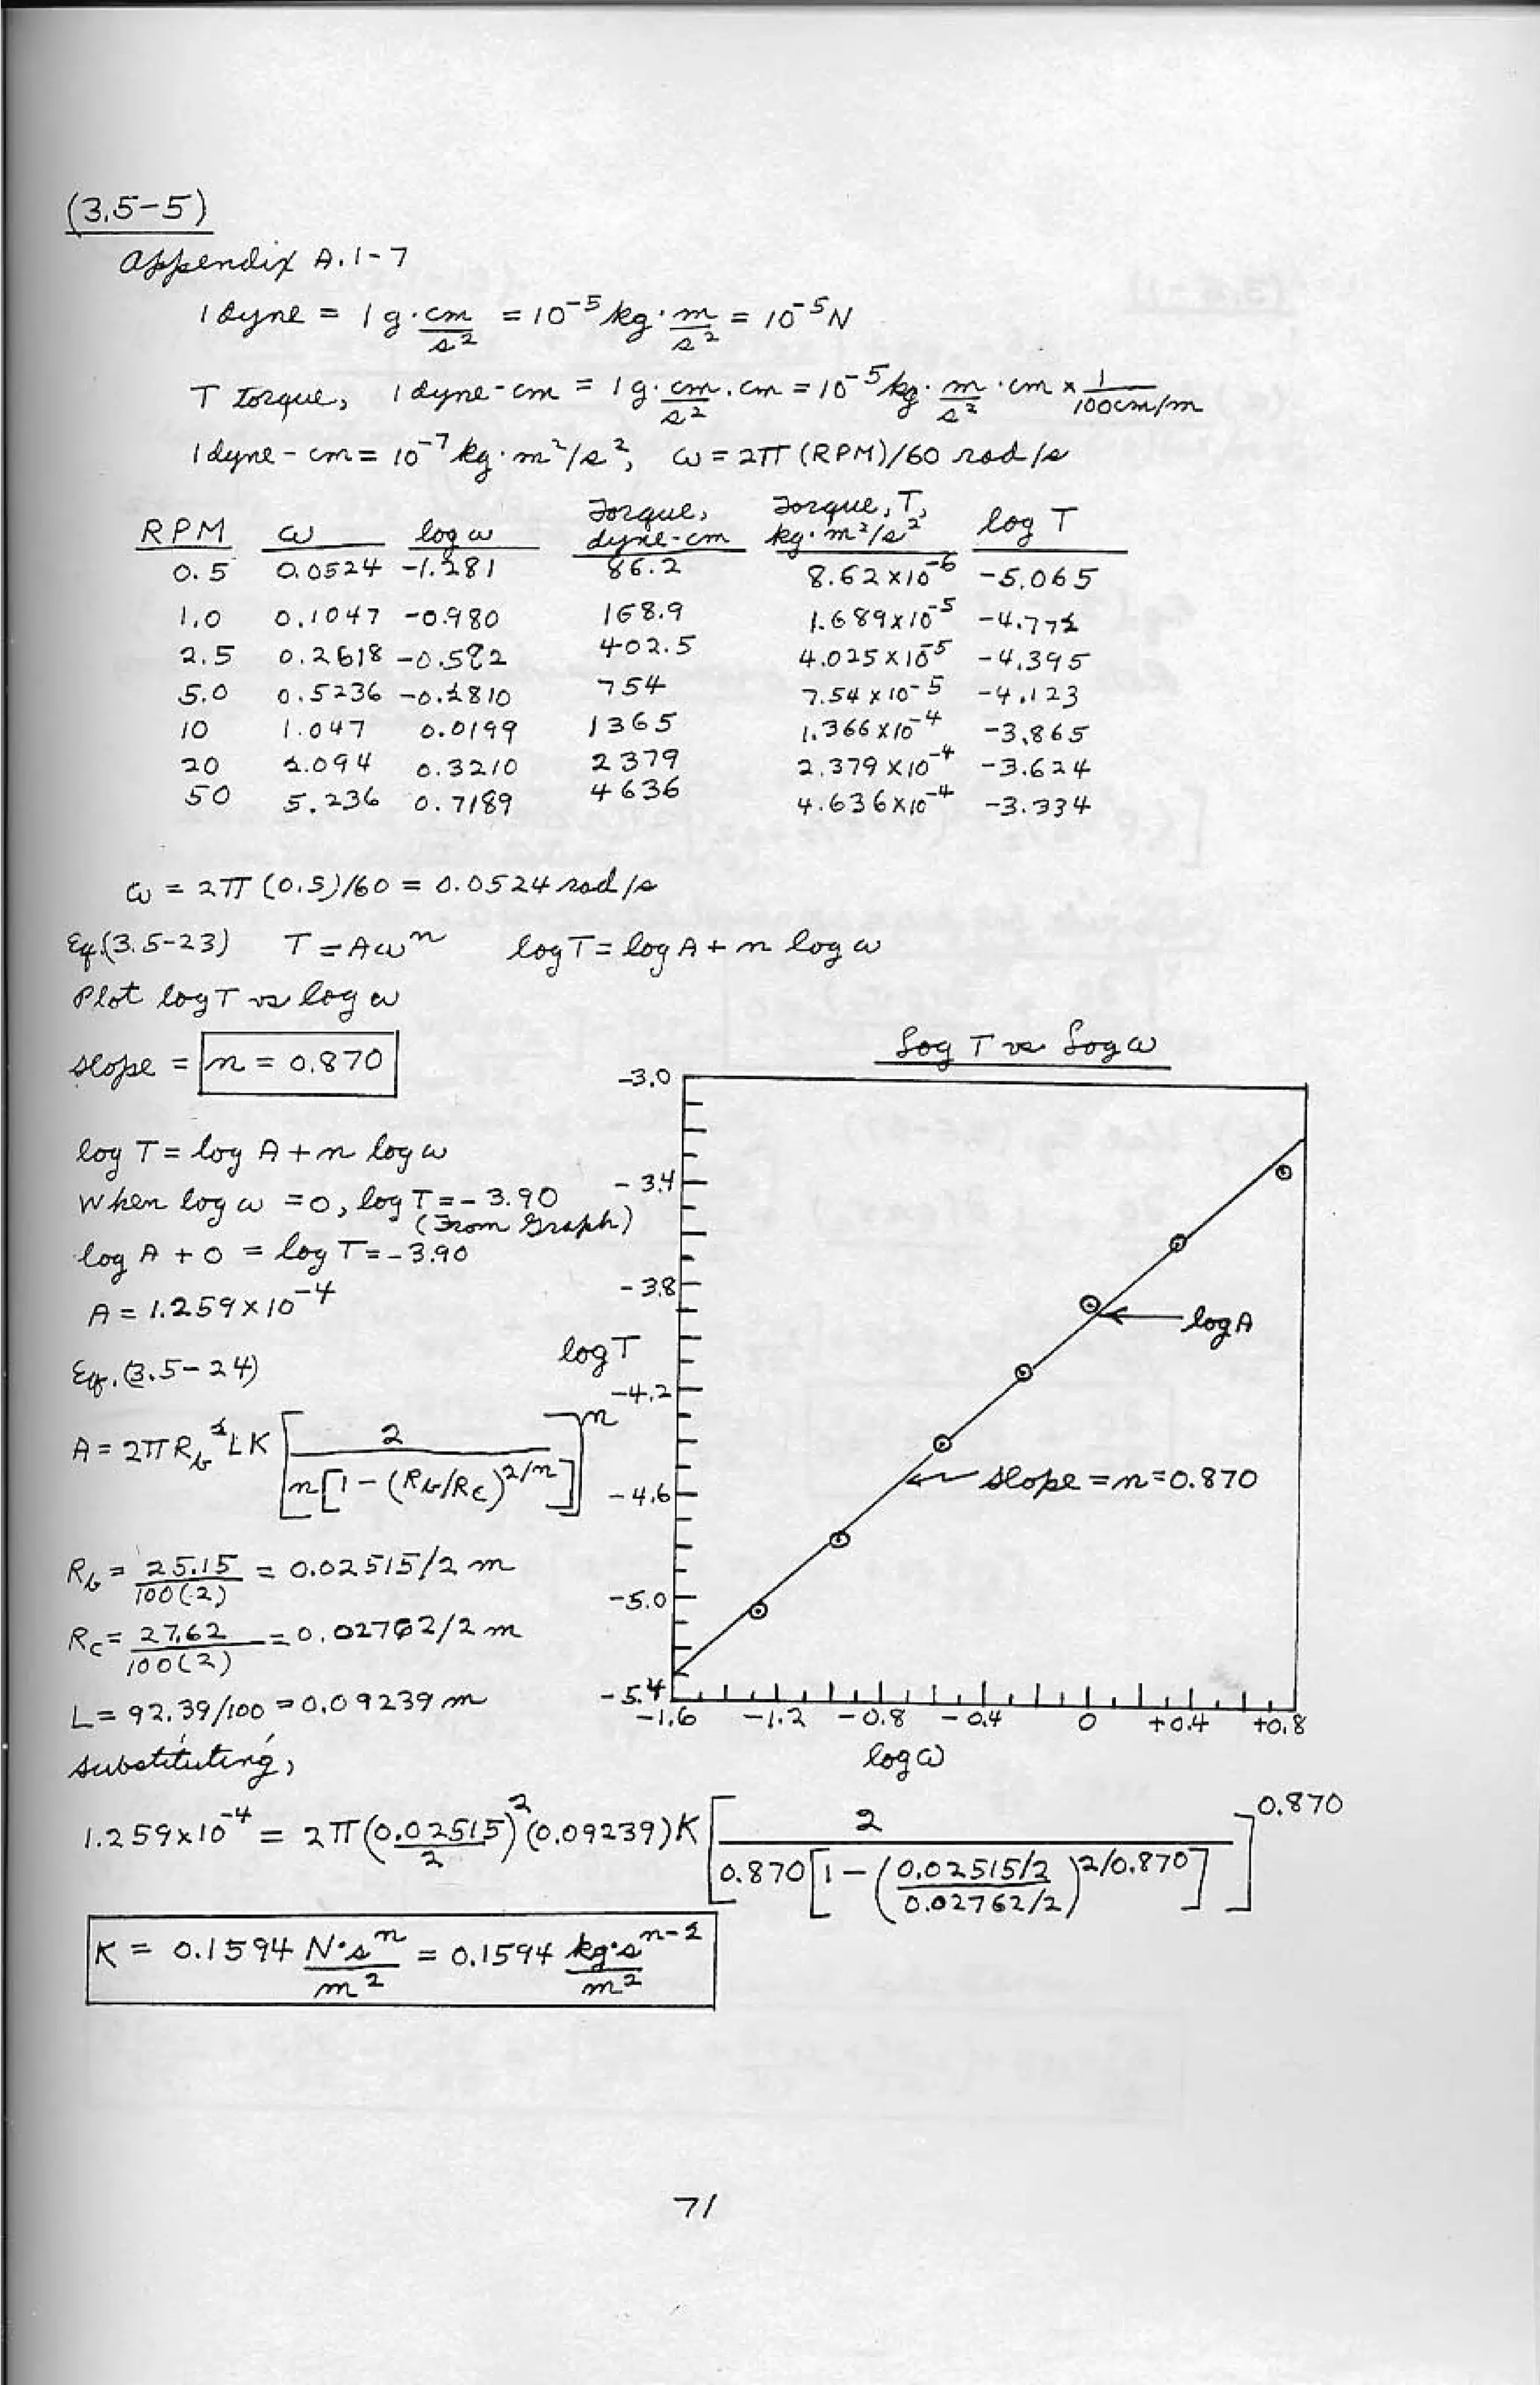 (3.5-5)
Appendix A.1-7
1 dyne = 1 g · cm/s² = 10⁻⁵ kg · m/s² = 10⁻⁵ N
T Torque, 1 dyne-cm = 1 g · cm/s² · cm = 10⁻⁵ kg · m/s² · cm × 1/100cm/m
1 dyne-cm = 10⁻⁷ kg · m²/s², ω = 2π (RPM)/60 rad/s
RPM ω log ω Torque, dyne-cm Torque, T, kg·m²/s² log T
0.5 0.0524 -1.281 86.2 8.62×10⁻⁶ -5.065
1.0 0.1047 -0.980 168.9 1.689×10⁻⁵ -4.772
2.5 0.2618 -0.582 402.5 4.025×10⁻⁵ -4.395
5.0 0.5236 -0.2810 754 7.54×10⁻⁵ -4.123
10 1.047 0.0199 1365 1.366×10⁻⁴ -3.865
20 2.094 0.3210 2379 2.379×10⁻⁴ -3.624
50 5.236 0.7189 4636 4.636×10⁻⁴ -3.334
ω = 2π (0.5)/60 = 0.0524 rad/s
Eq.(3.5-23) T = Aωⁿ log T = log A + n log ω
Plot log T vs log ω
slope = n = 0.870
log T = log A + n log ω
When log ω = 0, log T = -3.90
(From Graph)
log A + 0 = log T = -3.90
A = 1.259×10⁻⁴
Eq. (3.5-24)
A = 2πR_b²LK [2/n[1-(R_b/R_c)^2/n]]ⁿ
R_b = 25.15/100(2) = 0.02515/2 m
R_c = 27.62/100(2) = 0.02762/2 m
L = 92.39/100 = 0.09239 m
substituting,
Log T vs Log ω
-3.0
-3.4
-3.8
log T
-4.2
-4.6
-5.0
-5.4
log A
slope = n = 0.870
-1.6 -1.2 -0.8 -0.4 0 +0.4 +0.8
log ω
1.259×10⁻⁴ = 2π(0.02515/2)²(0.09239)K [2/0.870[1-(0.02515/2/0.02762/2)^2/0.870]]^0.870
K = 0.1594 N·sⁿ/m² = 0.1594 kg·sⁿ⁻²/m²
71